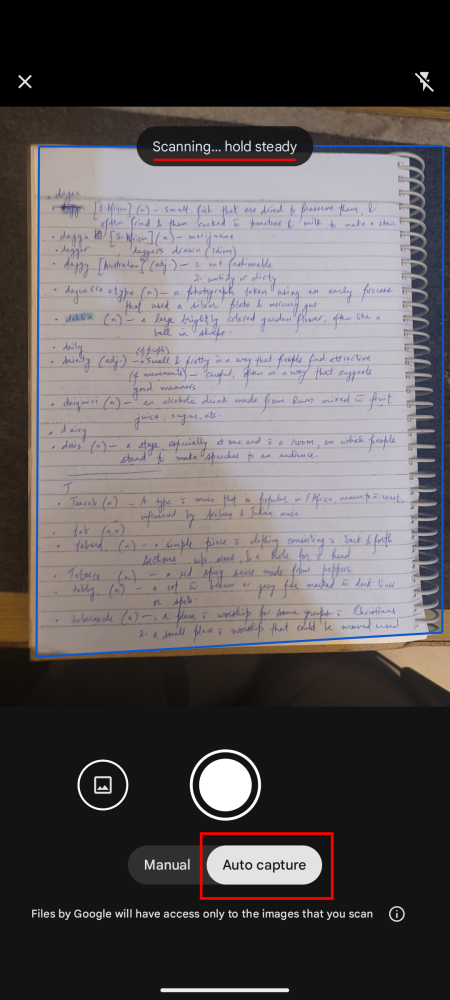 Scanning... hold steady
dagaa
[E.African] (n) – small fish that are dried to preserve them, &
often fried & then cooked in tomatoes & milk to make a stew
• dagga [S.African] (n) – marijuana
• dagger , daggers drawn (idiom)
• daggy [Australian] (adj.) – 1. not fashionable
2. untidy or dirty
• daguerreotype (n) – a photograph taken using an early process
that used a silver plate & mercury gas.
• dahlia (n) – a large brightly colored garden flower, often like a
ball in shape.
• daily
(of people)
• dainty (adj.) – small & pretty in a way that people find attractive
(of movements) – careful, often in a way that suggests
good manners
• daiquiri (n) – an alcoholic drink made from Rum mixed fruit
juice, sugar, etc.
• dairy
• dais (n) – a stage especially at one end a room, on which people
stand to make speeches to an audience.
T
(n) – A type music that is popular in E Africa,
influenced by & Indian music
• tab (n,v)
• tabard (n) – a simple piece clothing consisting back & forth
sections, & a hole for head
• Tabasco (n) – a red spicy sauce made from peppers
• tabby (n) – a cat brown or gray fur marked dark lines
or spots.
• tabernacle (n) – 1. a place worship for some groups Christians
2. a small place worship that could be moved used
Manual
Auto capture
Files by Google will have access only to the images that you scan